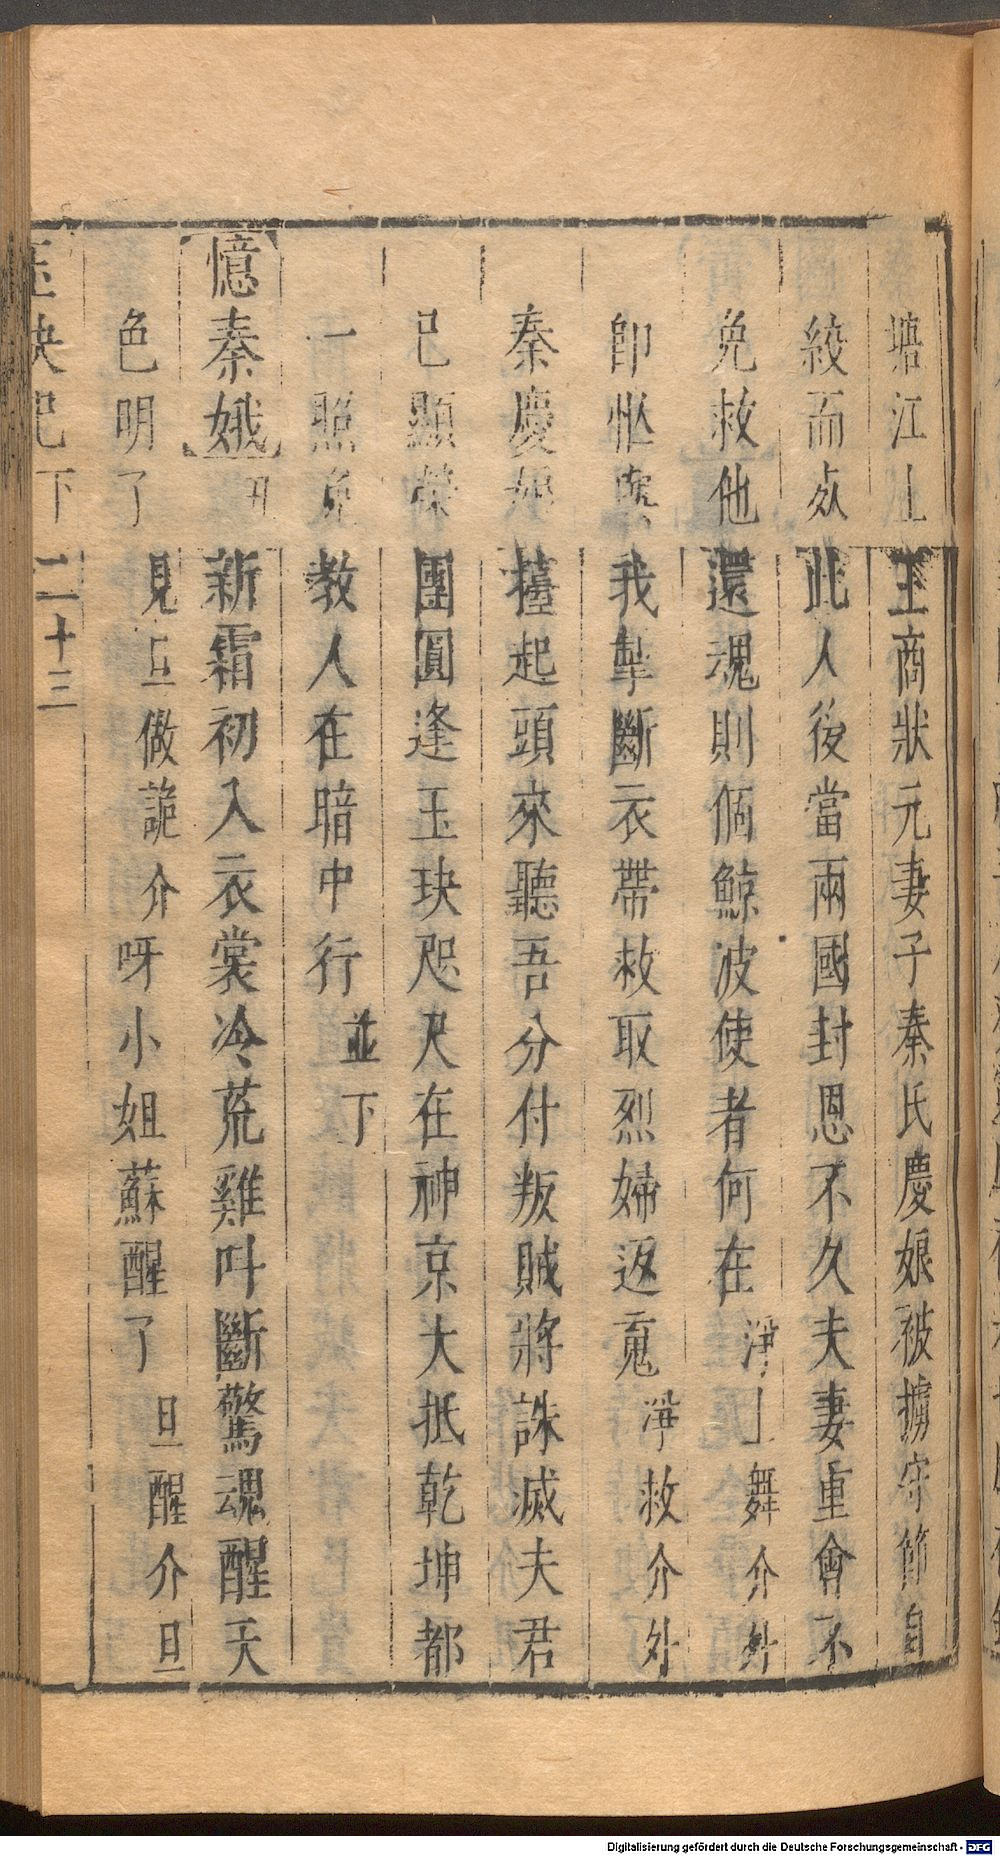 塘江上王商狀元妻子秦氏慶娘被擄守節自
絞而死此人後當兩國封恩不久夫妻重會不
免救他還魂則個鯨波使者何在淨上舞介外
即忙與我掣斷衣帶救取烈婦返䰟淨救介外
秦慶娘擡起頭來聽吾分付叛賊將誅滅夫君
已顯榮團圓逢玉玦咫尺在神京大抵乾坤都
一照免教人在暗中行並下
憶秦娥丑新霜初入衣裳冷荒雞叫斷驚魂醒天
色明了見旦做詭介呀小姐蘇醒了旦醒介旦
玉玦記下 二十三
Digitalisierung gefördert durch die Deutsche Forschungsgemeinschaft - DFG